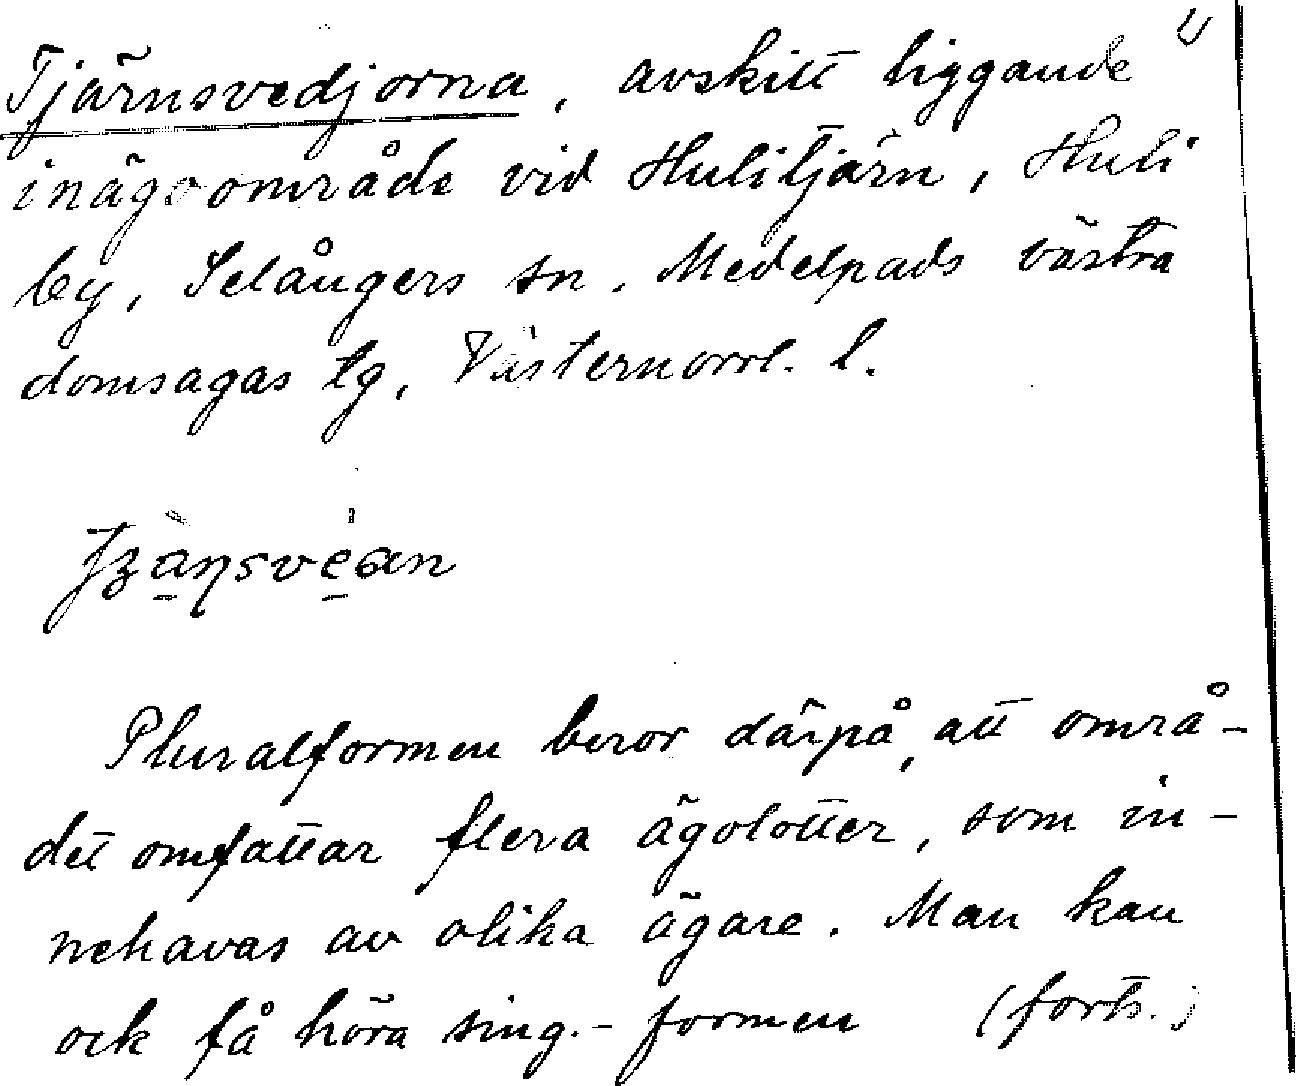 Tjärnsvedjorna, avskilt liggande
inägoområde vid Hulitjärn, Huli
by, Selångers sn, Medelpads västra
domsagas tg, Västernorrl. l.
Pluralformen beror därpå, att områ-
det omfattar flera ägolotter, som in-
nehavas av olika ägare. Man kan
ock få höra sing.-formen (forts.)